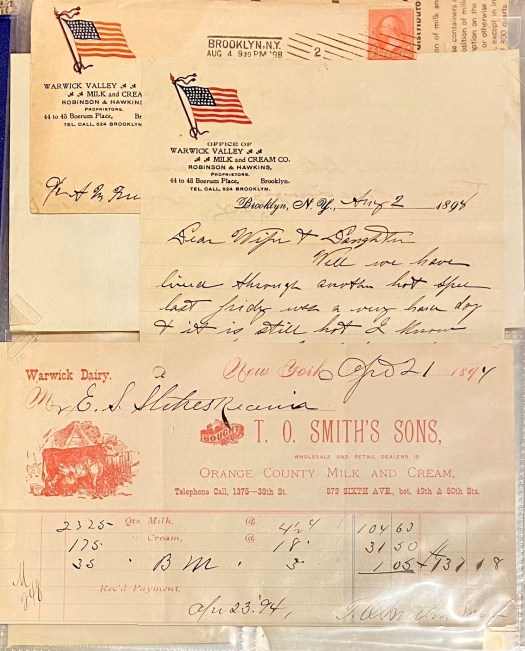 distributo
on of milk and
BROOKLYN, N.Y.
AUG 4 9 30 PM '98
2
WARWICK VALLEY
MILK AND CREA
ROBINSON & HAWKINS
PROPRIETORS.
44 to 48 Boerum Place, Br
TEL. CALL, 524 BROOKLYN
OFFICE OF
WARWICK VALLEY
MILK AND CREAM CO.
ROBINSON & HAWKINS,
PROPRIETORS.
44 to 48 Boerum Place, Brooklyn.
TEL. CALL, 524 BROOKLYN.
Brooklyn, N.Y., Aug 2 189
Dear Wife & Daughter
Well we have
lived through another hot spee
last friday was a very hard day
& it is still hot I know
Warwick Dairy. New York, Apr 21 1894
M E. S.
BOUGHT T. O. SMITH'S SONS,
WHOLESALE AND RETAIL DEALERS IN
ORANGE COUNTY MILK AND CREAM,
Telephone Call, 1375-38th St. 872 SIXTH AVE., bet. 49th & 50th Sts.
2325 Qts. Milk, @ 4½ 104 63
175 " Cream, @ 18 31 50
35 " B M " 3 1 05 137 18
Rec'd Payment,
Apr 23 '94,